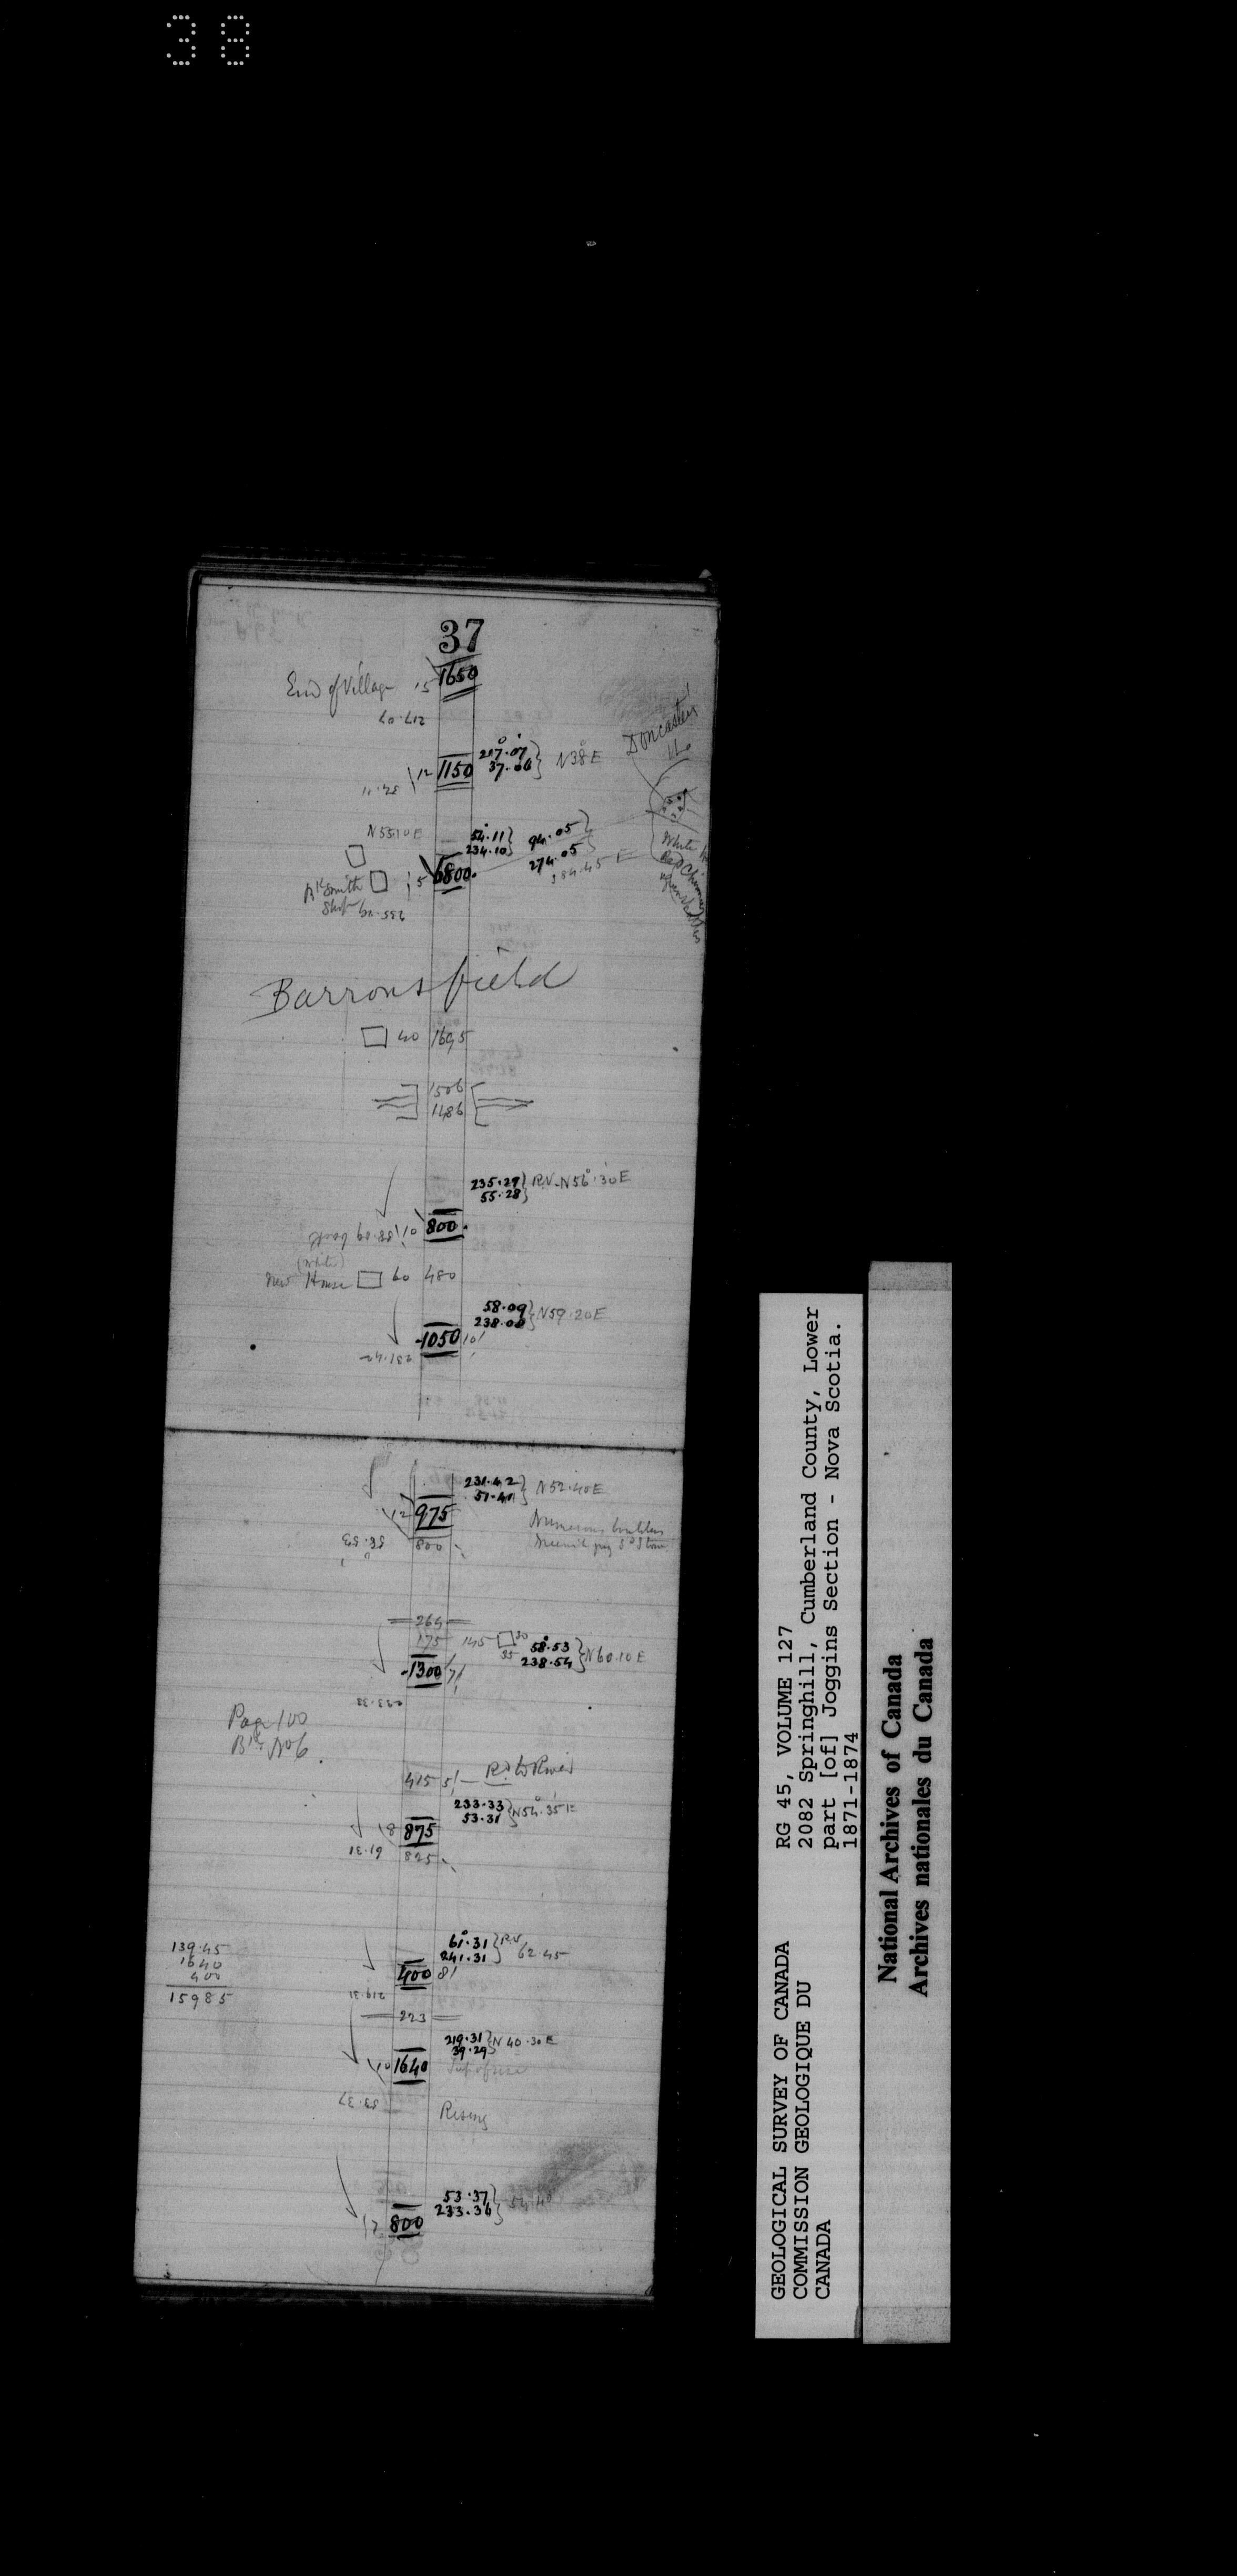 38
37
End of Village 15 1650
217.07
217.07
12 1150 37.06 N38°E
Doncaster
Ho
N53.10E
54.11 94.05
234.10 274.05
Bk Smith 5 1800
Shop
White
Red Chimney
Barronsfield
40 1695
1506
1486
235.29 R.V. N56°.30'E
55.28
10 800
58.09
(White)
New House 60 480
58.09 N59.20E
238.08
1050 10
231.42
231.42 N52.40E
51.41
12 975
Numerous boulders
58.53 800
264
175 145 30
35
58.53 N60.10E
238.54
1300 7
233.33
Page 100
Bk No 6
415 5 Rd to River
233.33 N54°.35'E
53.31
8 875
61.31 825
61.31 R.V. 62.45
241.31
400 8
139.45
1640
400
15985
219.31
223
219.31 N40.30E
39.29
10 1640
53.37
Rising
53.37 54.40
233.36
12 800
GEOLOGICAL SURVEY OF CANADA
COMMISSION GEOLOGIQUE DU
CANADA
RG 45, VOLUME 127
2082 Springhill, Cumberland County, Lower
part [of] Joggins Section - Nova Scotia.
1871-1874
National Archives of Canada
Archives nationales du Canada